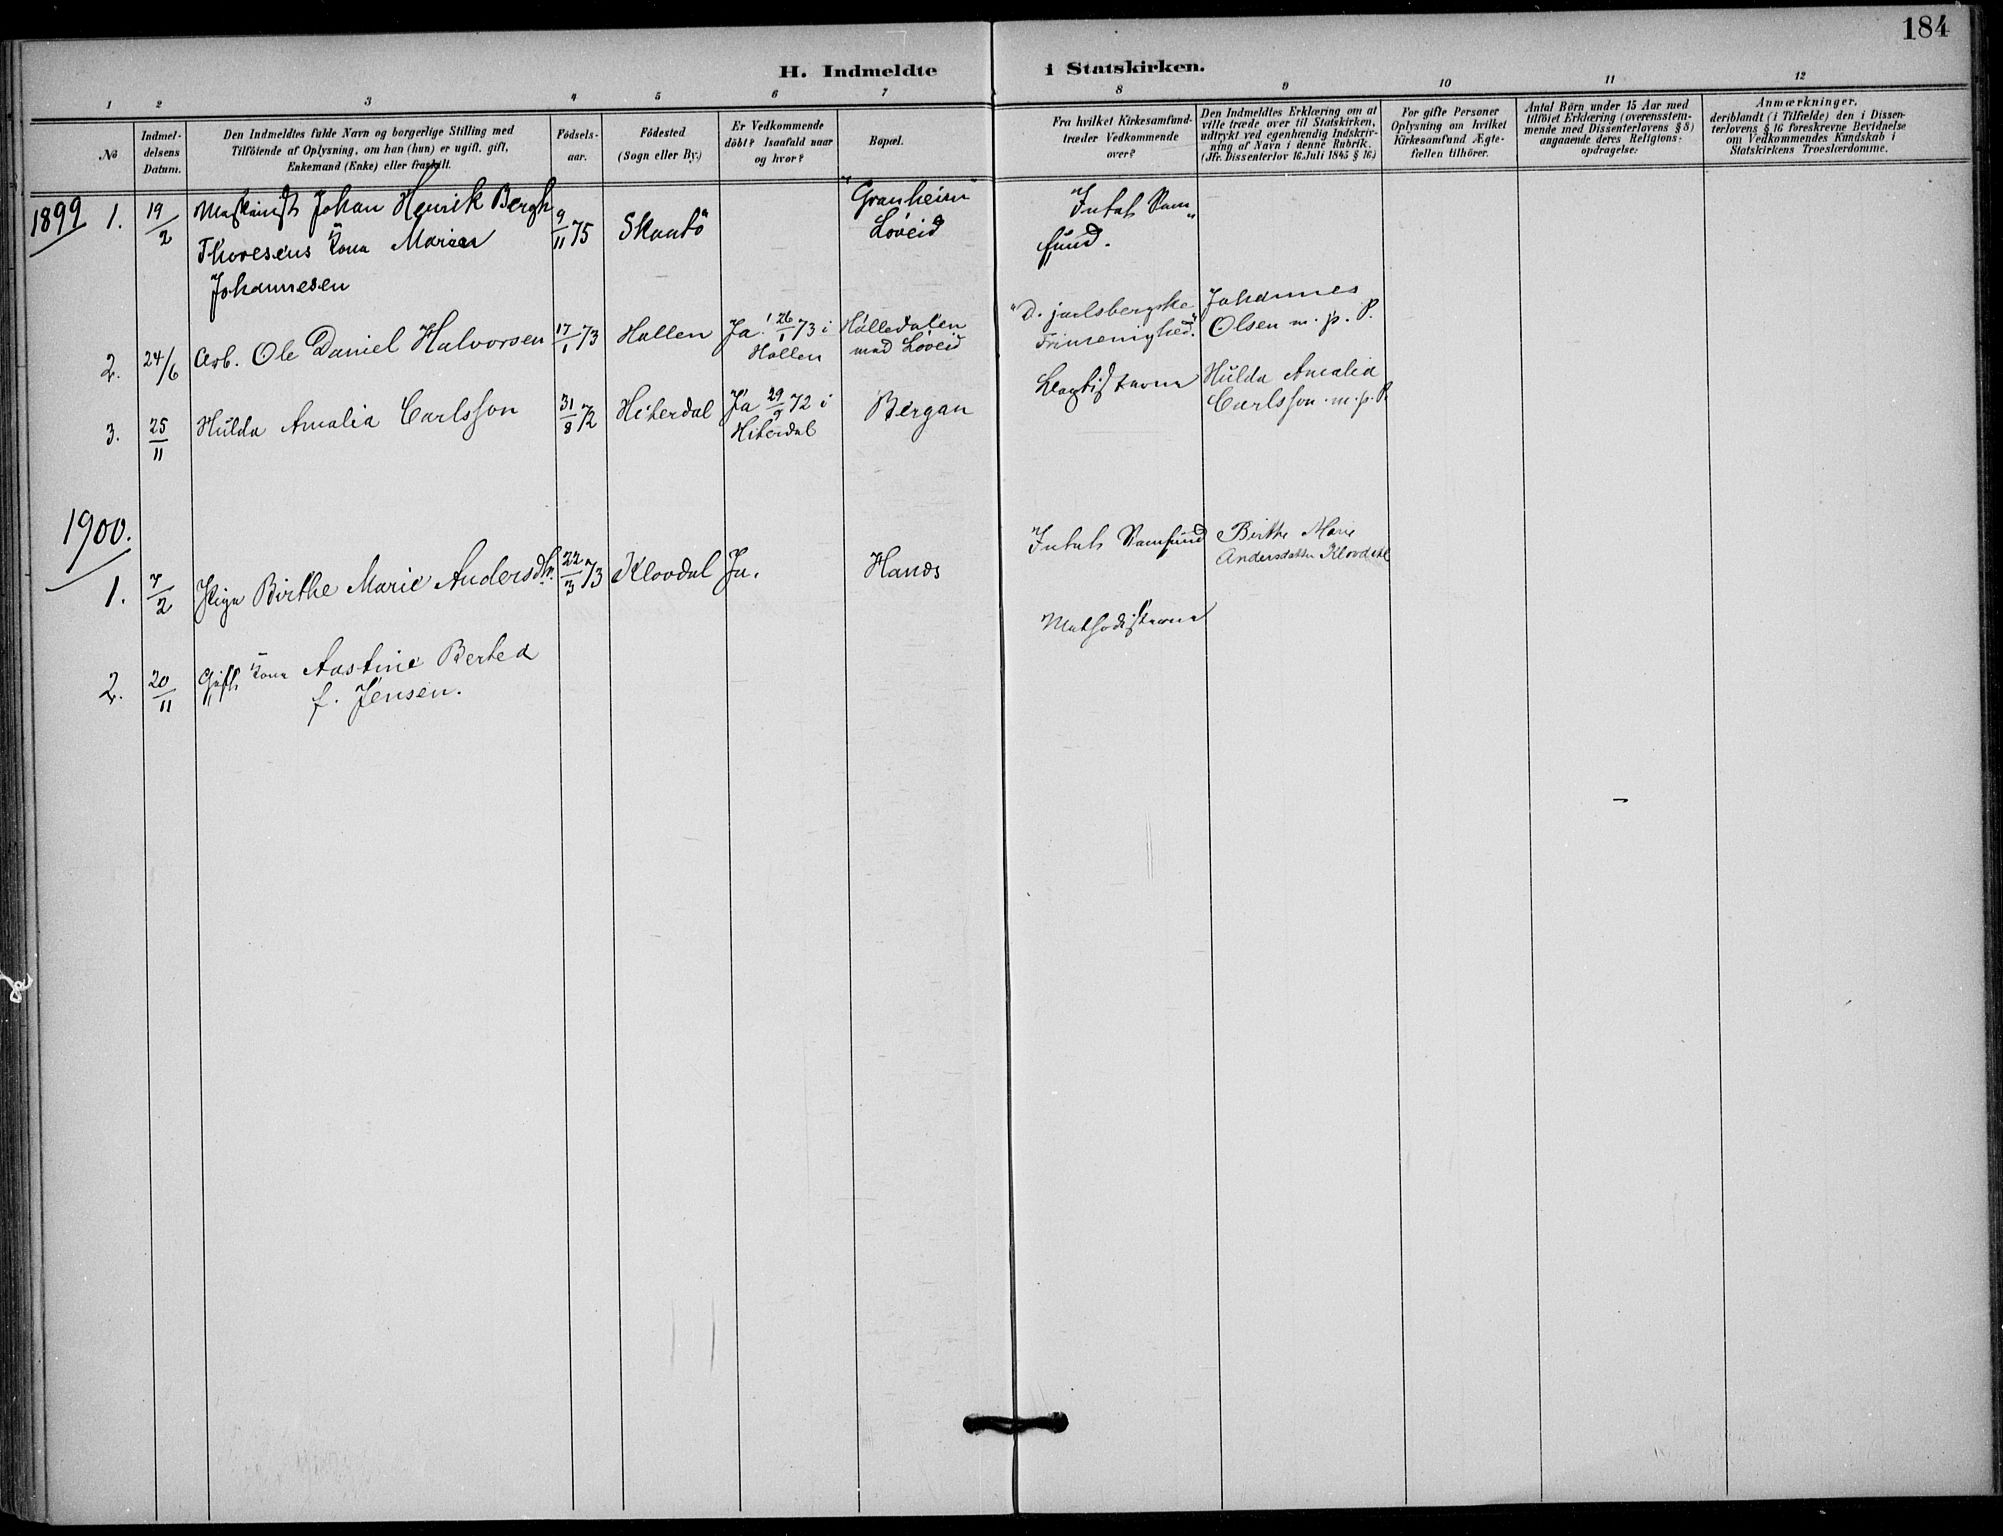 184
H. Indmeldte i Statskirken.
1 2 3 4 5 6 7 8 9 10 11 12
No
Indmel-
delsens
Datum.
Den Indmeldtes fulde Navn og borgerlige Stilling med
Tilföiende af Oplysning, om han (hun) er ugift, gift,
Enkemand (Enke) eller fraskilt.
Födsels-
aar.
Födested
(Sogn eller By.)
Er Vedkommende
döbt? Isaafald naar
og hvor?
Bopæl.
Fra hvilket Kirkesamfund
træder Vedkommende
over?
Den Indmeldtes Erklæring om at
ville træde over til Statskirken,
udtrykt ved egenhændig Indskriv-
ning af Navn i denne Rubrik.
(Jfr. Dissenterlov 16 Juli 1845 § 16.)
For gifte Personer
Oplysning om hvilket
Kirkesamfund Ægte-
fællen tilhörer.
Antal Börn under 15 Aar med
tilföiet Erklæring (overensstem-
mende med Dissenterlovens § 8)
angaaende deres Religions-
opdragelse.
Anmærkninger,
deriblandt (i Tilfælde) den i Dissen-
terlovens § 16 foreskrevne Bevidnelse
om Vedkommendes Kundskab i
Statskirkens Troeslærdomme.
1899
1. 19/2 Maskinist Johan Henrik Bergh
Thoresens Kona Maren
Johannesen
9/11 75
Skaatö
"Granheim"
Löveid
Intet Sam
fund.
2. 24/6 Arb. Ole Daniel Halvorsen
17/1 73
Hollen
Ja! 26/1 73 i
Hollen
Holledalen
med Löveid
"D. jarlsbergske
Frimenighed."
Johannes
Olsen m. p. P.
3. 25/11 Hulda Amalia Carlsson
31/8 72
Hiterdal
Ja 29/9 72 i
Hiterdal
Bergan
Baptisterne
Hulda Amalia
Carlsson m. p. P
1900.
1. 7/2 Pige Birthe Marie Andersdtr.
22/3 73
Klovdal
Ja.
Hanes
Intet Samfund
Birthe Marie
Andersdatter Klovdal
2. 20/11 Gift Kona Aastine Bertea
f. Jensen.
Methodisterne